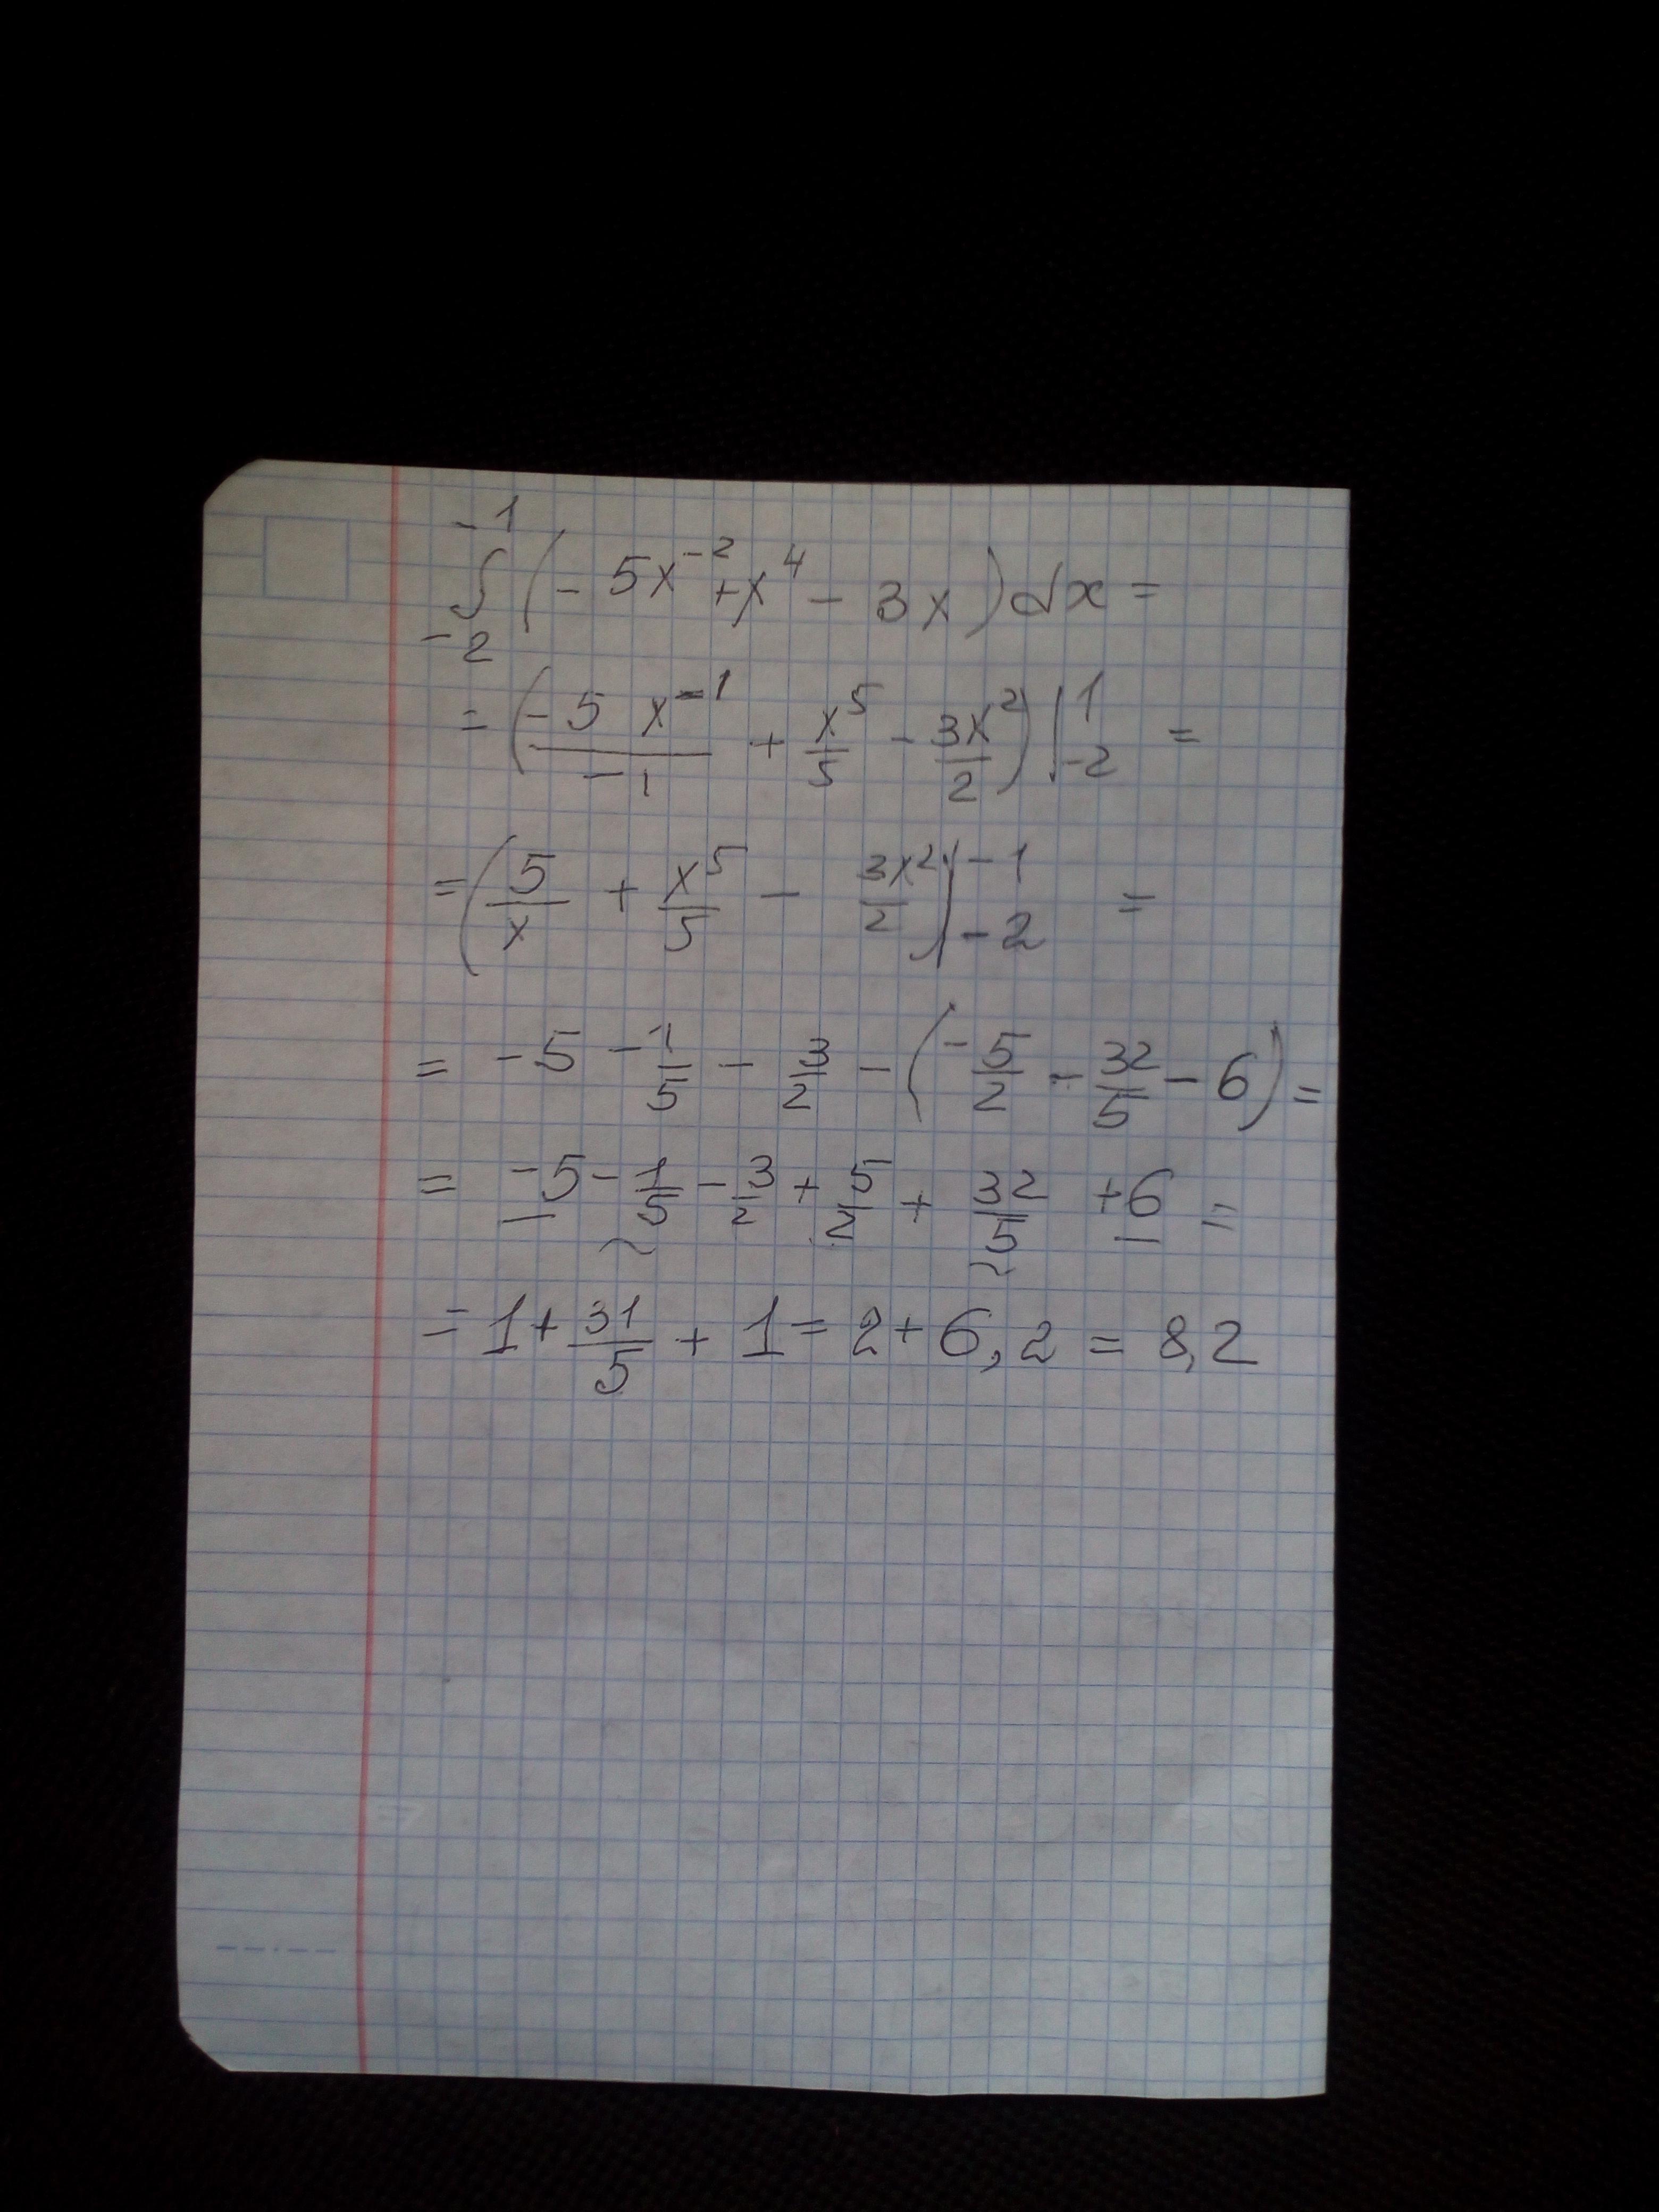 ∫_{-2}^{-1} (-5x^{-2}+x^4-3x)dx=
=(\frac{-5 x^{-1}}{-1}+\frac{x^5}{5}-\frac{3x^2}{2})|_{-2}^{1}=
=(\frac{5}{x}+\frac{x^5}{5}-\frac{3x^2}{2})|_{-2}^{-1}=
=-5-\frac{1}{5}-\frac{3}{2}-(-\frac{5}{2}-\frac{32}{5}-6)=
=-5-\frac{1}{5}-\frac{3}{2}+\frac{5}{2}+\frac{32}{5}+6=
=1+\frac{31}{5}+1=2+6,2=8,2